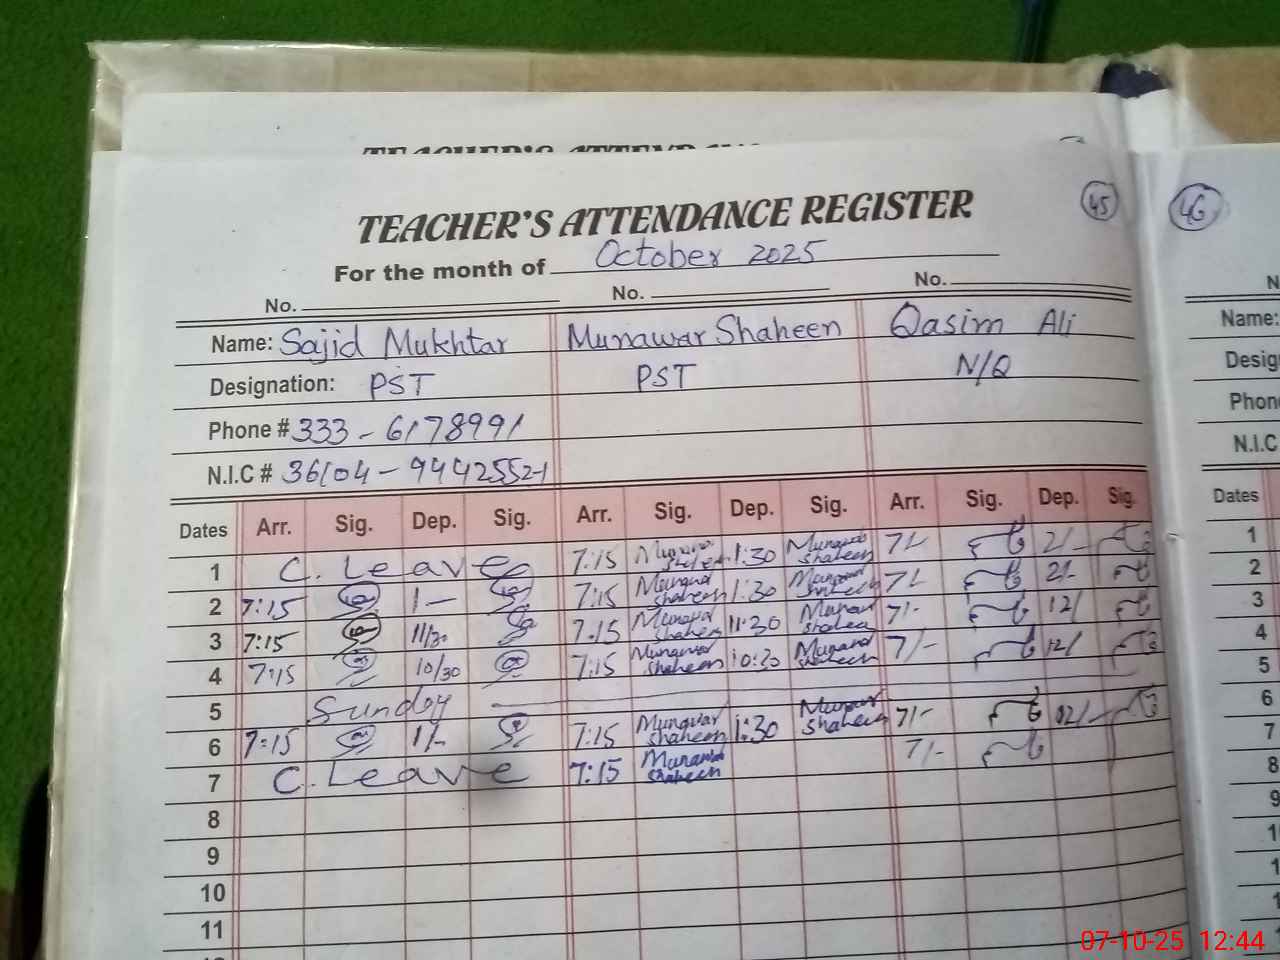 TEACHER'S ATTENDANCE REGISTER
45
46
For the month of October 2025
No. No. No.
Name: Sajid Mukhtar Munawar Shaheen Qasim Ali
Designation: PST PST N/Q
Phone # 333-6178991
N.I.C # 36104-94425521
Dates Arr. Sig. Dep. Sig. Arr. Sig. Dep. Sig. Arr. Sig. Dep. Sig.
1 C. Leave 7:15 Munawar Shaheen 1:30 Munawar Shaheen 7/- 2/-
2 7:15 1- 7:15 Munawar Shaheen 1:30 Munawar Shaheen 7/- 2/-
3 7:15 11/30 7:15 Munawar Shaheen 11:30 Munawar Shaheen 7/- 12/
4 7:15 10/30 7:15 Munawar Shaheen 10:30 Munawar Shaheen 7/- 12/
5 Sunday
6 7:15 1/- 7:15 Munawar Shaheen 1:30 Munawar Shaheen 7/- 02/-
7 C. Leave 7:15 Munawar Shaheen 7/-
8
9
10
11
N
Name:
Desig
Phon
N.I.C
Dates
1
2
3
4
5
6
7
8
9
07-10-25 12:44